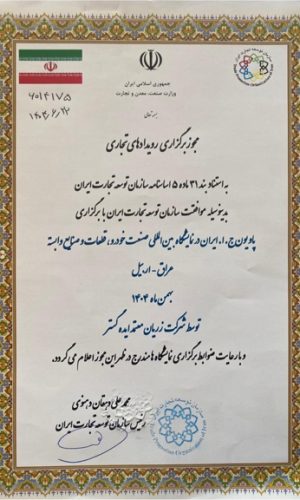 جمهوری اسلامی ایران
وزارت صنعت، معدن و تجارت
بسمه تعالی
۱۴۰۴/۶/۲۲
مجوز برگزاری رویدادهای تجاری
به استناد بند ۳۱ ماده ۵ اساسنامه سازمان توسعه تجارت ایران
بدینوسیله موافقت سازمان توسعه تجارت ایران با برگزاری
پاویون ج.ا.ایران در نمایشگاه بین المللی صنعت خودرو، قطعات و صنایع وابسته
عراق - اربیل
بهمن ماه ۱۴۰۴
توسط شرکت زریان معتمد ایده گستر
و با رعایت ضوابط برگزاری نمایشگاه ها مندرج در ظهر این مجوز اعلام می گردد.
محمد علی دهقان دهنوی
رئیس سازمان توسعه تجارت ایران